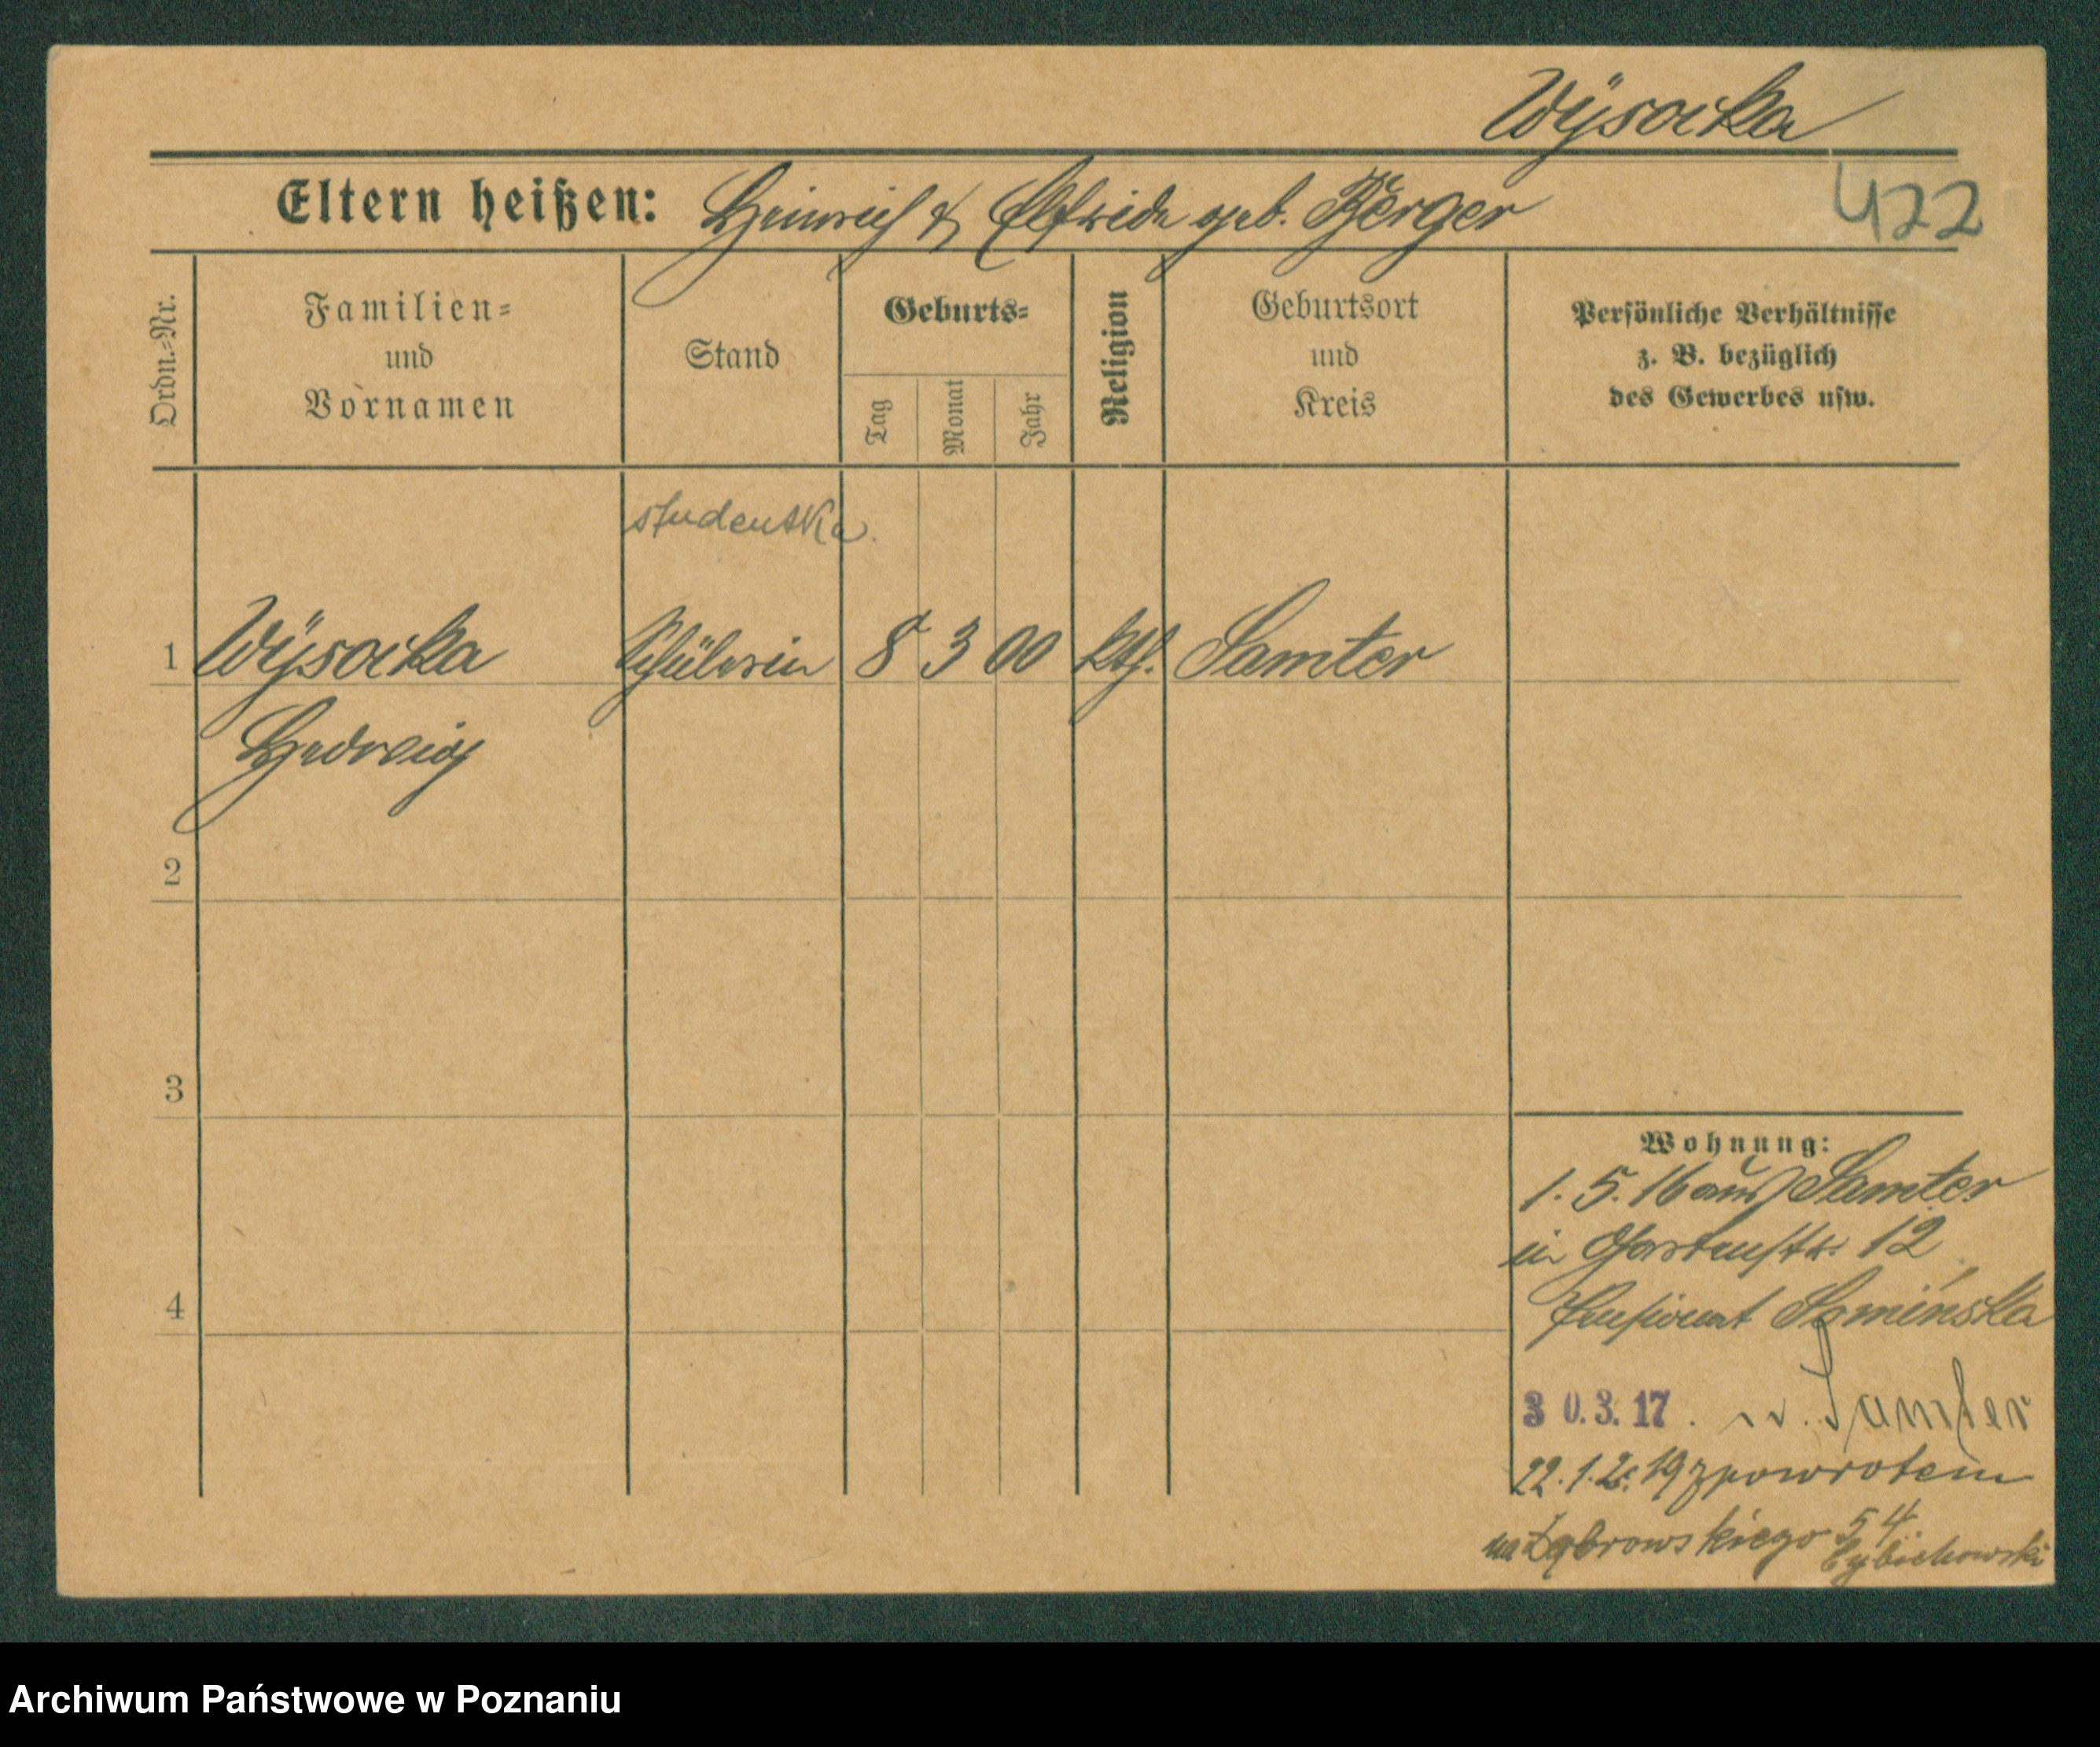 Wÿsocka
Eltern heißen: Heinrich & Elfriede geb. Berger
422
Ordn.-Nr.
Familien=
und
Vornamen
Stand
Geburts=
Tag
Monat
Jahr
Religion
Geburtsort
und
Kreis
Persönliche Verhältnisse
z. B. bezüglich
des Gewerbes usw.
studentka.
1 Wÿsocka Schülerin 8 3 00 kth. Samter
Hedwig
2
3
4
Wohnung:
1. 5. 16 aus Samter
in Gartenstr. 12
Pensionat
30.3.17. n. Samter
19 zpowrotem
na Dąbrowskiego 54
Cybichowski
Archiwum Państwowe w Poznaniu